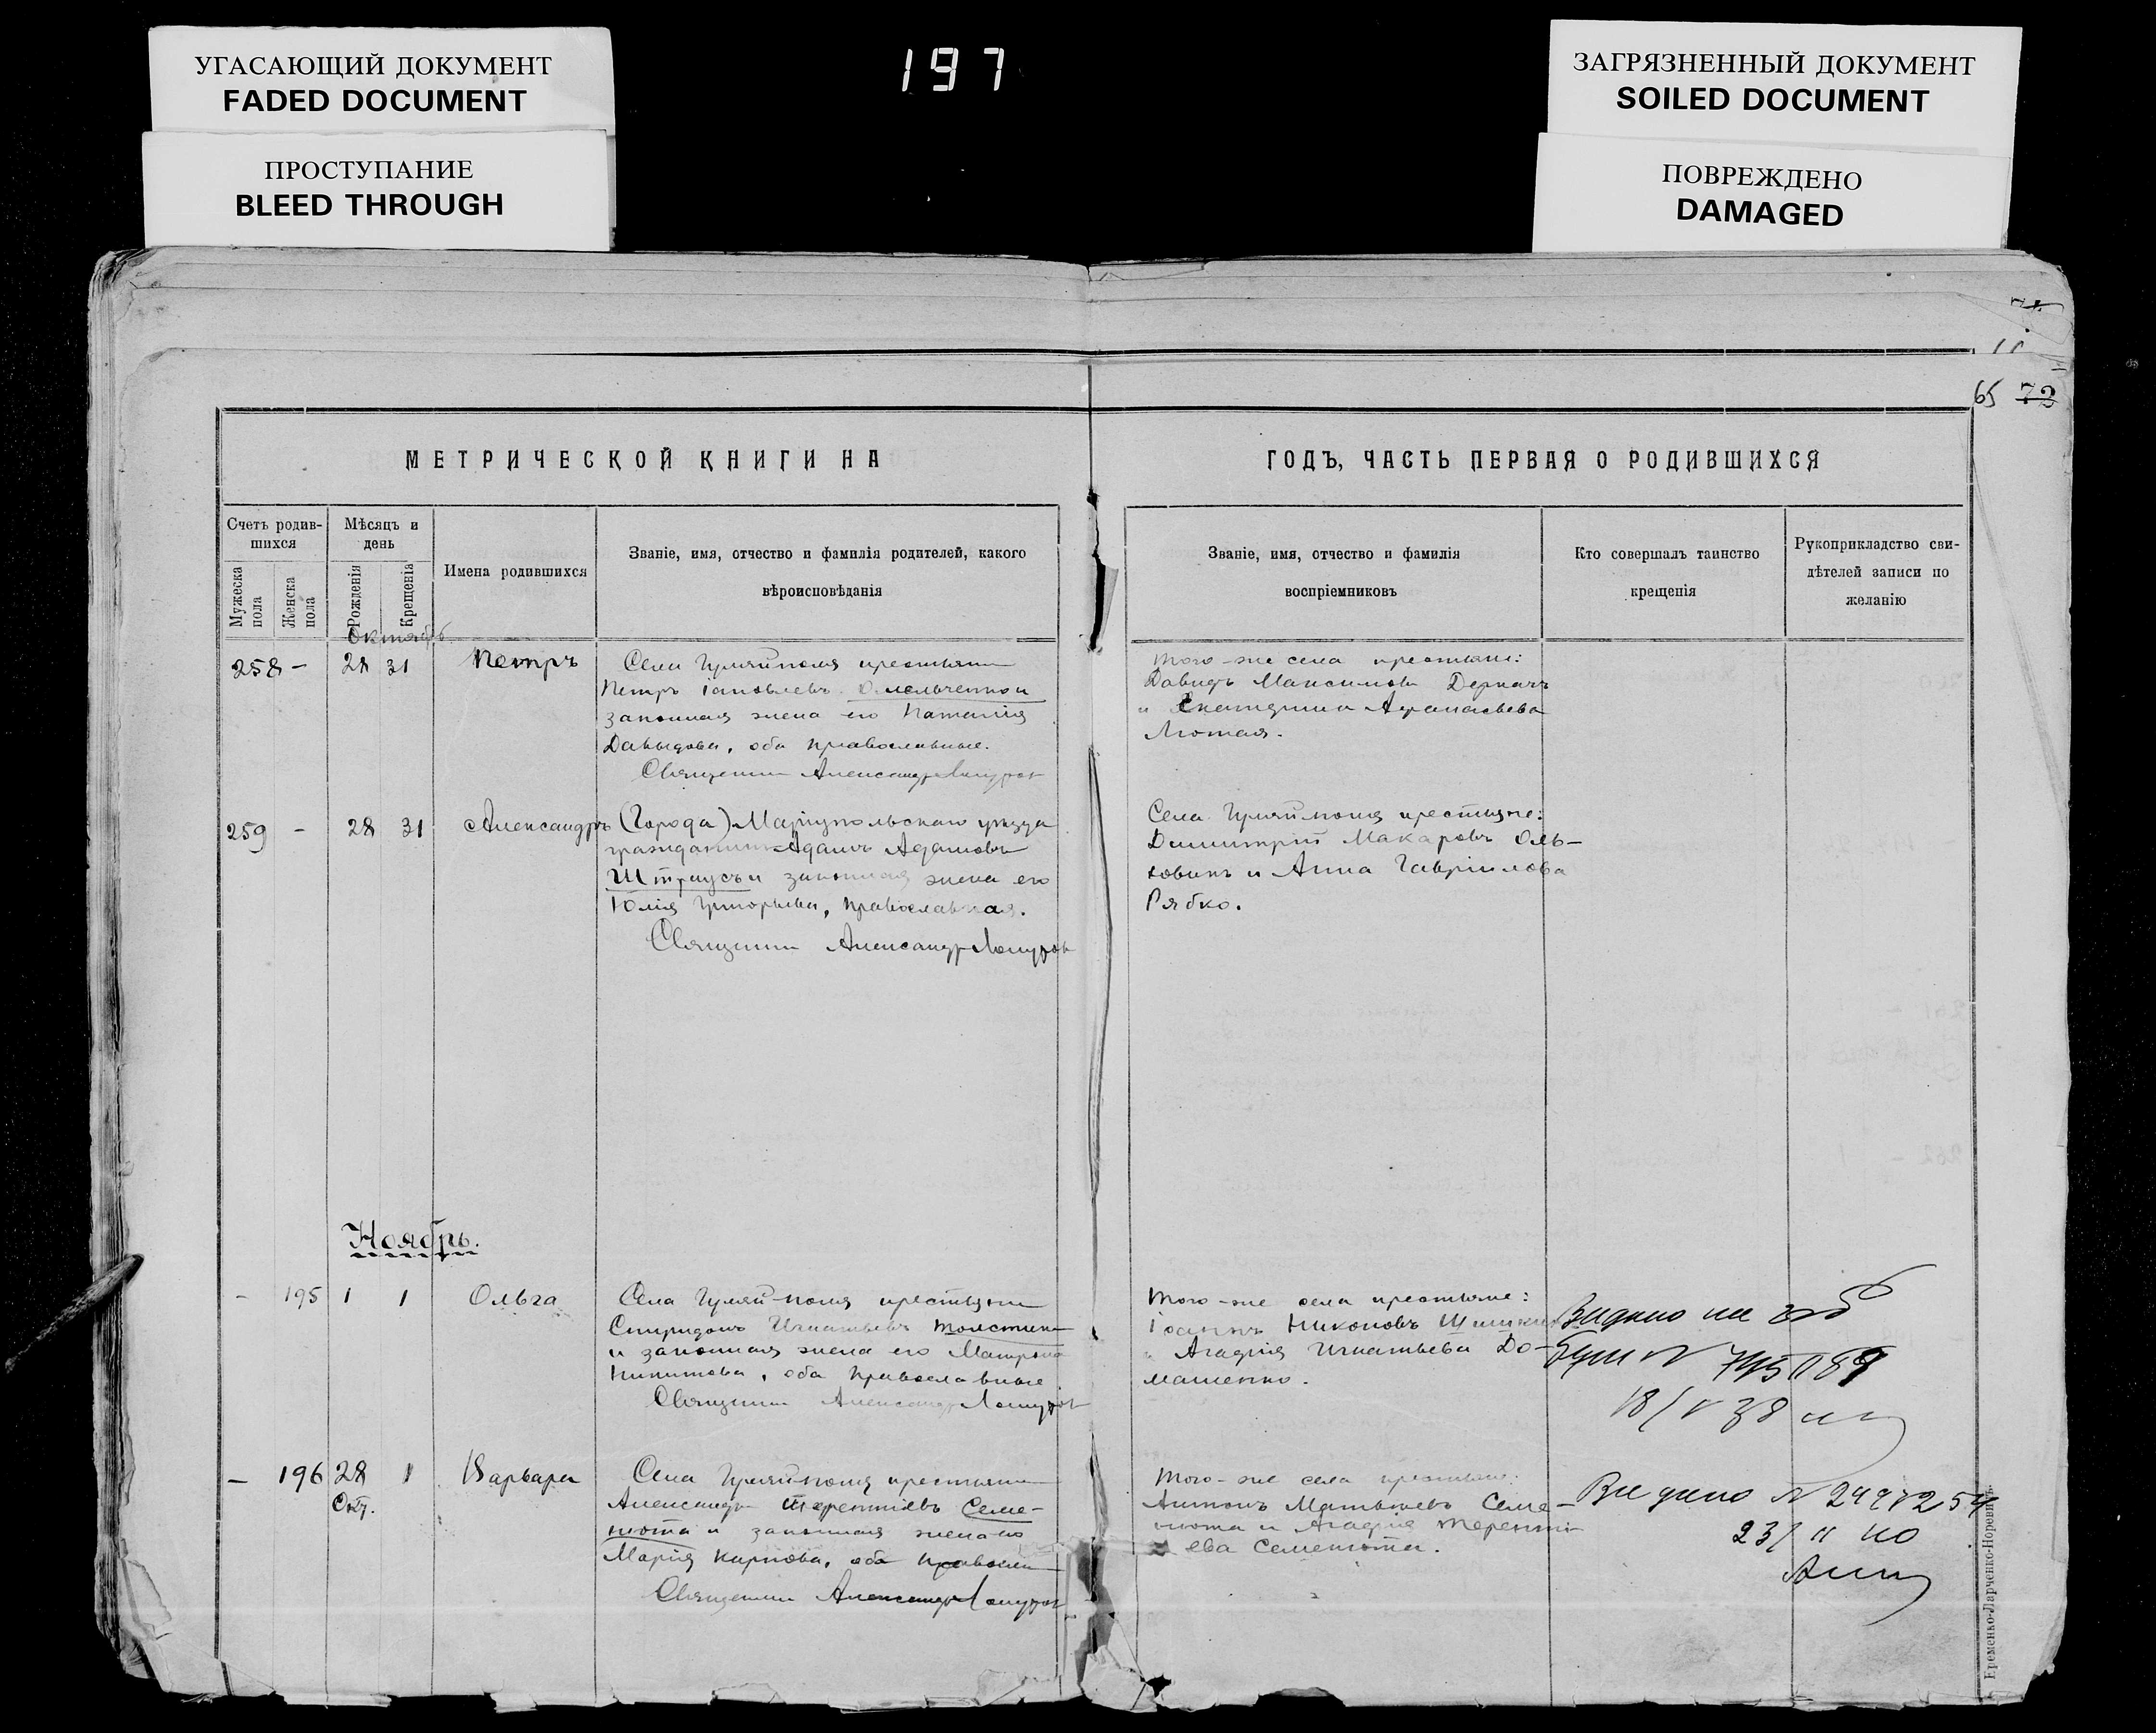 УГАСАЮЩИЙ ДОКУМЕНТ
FADED DOCUMENT
ПРОСТУПАНИЕ
BLEED THROUGH
197
ЗАГРЯЗНЕННЫЙ ДОКУМЕНТ
SOILED DOCUMENT
ПОВРЕЖДЕНО
DAMAGED
65 72
МЕТРИЧЕСКОЙ КНИГИ НА
ГОДЪ, ЧАСТЬ ПЕРВАЯ О РОДИВШИХСЯ
Счетъ родив-
шихся
Мужеска
пола
Женска
пола
Мѣсяцъ и
день
Рожденія
Крещенія
Имена родившихся
Званіе, имя, отчество и фамилія родителей, какого
вѣроисповѣданія
Званіе, имя, отчество и фамилія
воспріемниковъ
Кто совершалъ таинство
крещенія
Рукоприкладство сви-
дѣтелей записи по
желанію
Октябрь
258 - 28 31 Петръ
Села Гуляйполя крестьянин
Петръ Іаковлевъ Омельченко и
законная жена его Наталія
Давыдова, оба православные.
Священник Александр
Того-же села крестьяне:
Давидъ Максимовъ Деркачъ
и Екатерина Афанасьева
Лютая.
259 - 28 31 Александръ
(Города) Маріупольскаго уезда
гражданин Адамъ Адамовъ
Штраусъ и законная жена его
Юлія Григорьева, православная.
Священник Александр
Села Гуляйполя крестьяне:
Димитрій Макаровъ Оль-
ховикъ и Анна Гавріилова
Рябко.
Ноябрь.
- 195 1 1 Ольга
Села Гуляй-поля крестьянин
Спиридонъ Игнатьевъ
и законная жена его Матрона
Никитова, оба православные
Священник Александр
Того-же села крестьяне:
Іоаннъ Никоновъ
и Агафія Игнатьева До-
машенко.
Видано
18/V 38
- 196 28 1 Варвара
Окт.
Села Гуляйполя крестьянин
Александръ Терентіевъ Семе-
нюта и законная жена его
Марія Карпова, оба православн
Священник Александр
Того-же села крестьяне:
Антонъ Матвѣевъ Семе-
нюта и Агафія Терентi-
ева Семенюта.
Видано N
23/II 40
Еременко-Ларченко-Норевичъ.